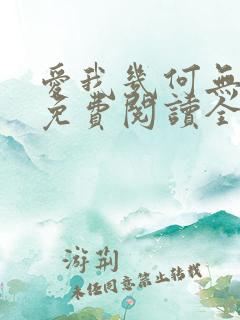 愛我幾何無
免費閱讀全
游荊
未經同意禁止轉載